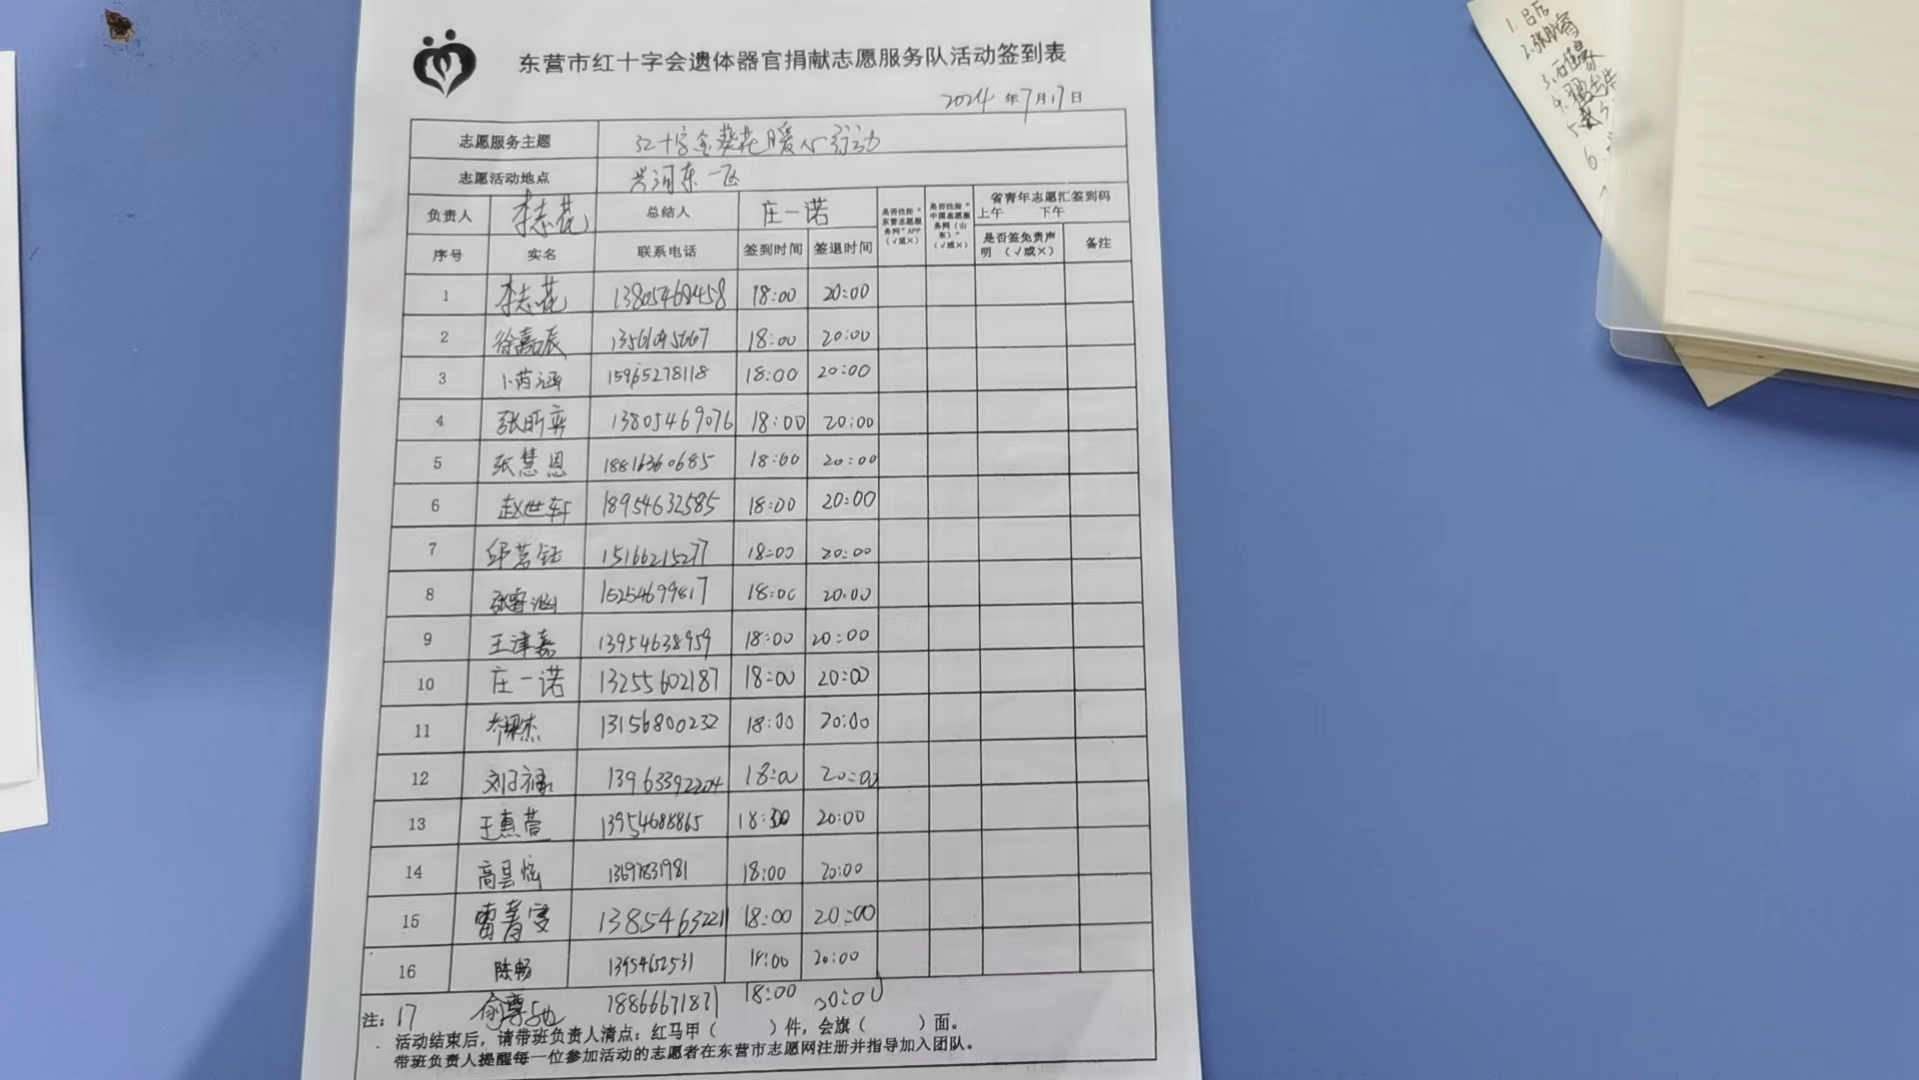 东营市红十字会遗体器官捐献志愿服务队活动签到表
2024 年 7 月 17 日
志愿服务主题 红十字金葵花暖心行动
志愿活动地点 兴河东一区
负责人 李志花 总结人 庄一诺 是否注册“东营志愿服务网”APP（√或×） 是否注册“中国志愿服务网（山东）”（√或×） 省青年志愿汇签到码 上午 下午
序号 实名 联系电话 签到时间 签退时间 是否签免责声明（√或×） 备注
1 李志花 13805468458 18:00 20:00
2 徐嘉辰 18:00 20:00
3 卜芮涵 15965278118 18:00 20:00
4 张昕奕 13805469076 18:00 20:00
5 张慧恩 18816360685 18:00 20:00
6 赵世轩 18954632585 18:00 20:00
7 邱茗钰 15166215277 18:00 20:00
8 15254699817 18:00 20:00
9 王津嘉 13954638959 18:00 20:00
10 庄一诺 13255602187 18:00 20:00
11 13156800232 18:00 20:00
12 13963392204 18:00 20:00
13 王惠萱 13954688865 18:00 20:00
14 高昙炫 18:00 20:00
15 13854632211 18:00 20:00
16 陈畅 13954652531 18:00 20:00
注： 17 18866671871 18:00 20:00
活动结束后，请带班负责人清点：红马甲（ ）件，会旗（ ）面。
带班负责人提醒每一位参加活动的志愿者在东营市志愿网注册并指导加入团队。